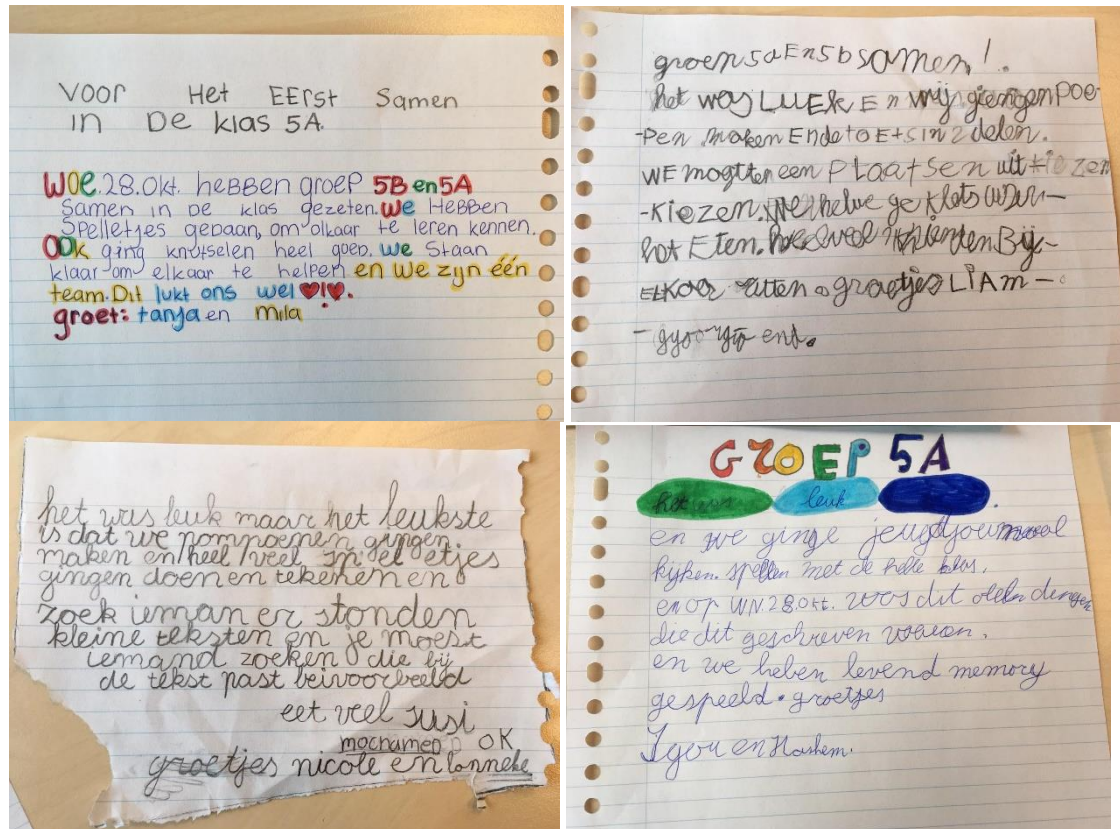 Voor Het EErst Samen
in De klas 5A.
Woe.28.Okt. hebben groep 5B en 5A
Samen in De klas gezeten. We HeBBen
Spelletjes gedaan, om olkaar te leren kennen.
OOk ging knutselen heel goed. We Staan
klaar om elkaar te helpen en we zyn één
team. Dit lukt ons wel ♥!♥.
groet: tanja en mila
groen 5a En 5b samen!.
het was LUEK En wij giengen poe-
-pen maken Ende toEtsin 2 delen.
WE mogtten een PLaatsen uit kiezen
-kiezen. We
hot Eten. Bij-
ELkaar groetjes LiAm-
end.
het was leuk maar het leukste
is dat we pompoenen gingen
maken en heel veel spel etjes
gingen doen en tekenen en
zoek ieman er stonden
kleine teksten en je moest
iemand zoeken die bij
de tekst past beivoorbeeld
eet veel susi
mochamed OK
groetjes nicole en lonneke
GROEP 5A
het was leuk
en we ginge jeugdjournaal
kijken. spellen met de hele klas.
en op WN.28.Okt. was dit allen dingen
die dit geschreven waren.
en we heben levend memory
gespeeld. groetjes
Igor en Hashem.